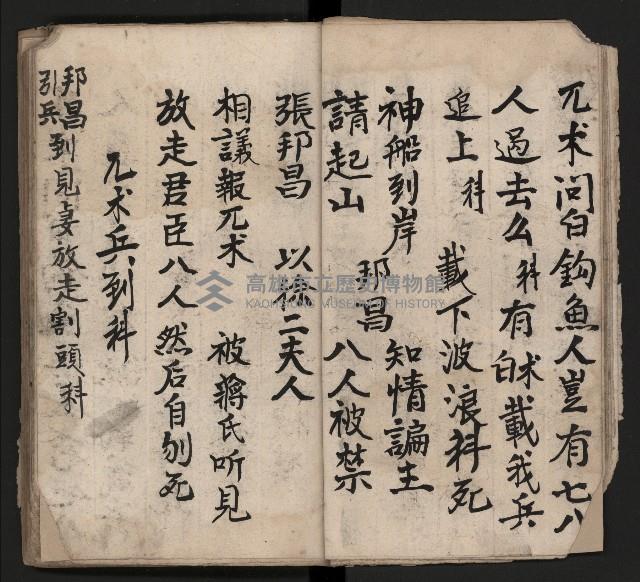 兀术问白鈎魚人豈有七八
人過去么科有白术載我兵
追上科 載下波浪科死
神船到岸 邦昌知情諞主
請起山 八人被禁
張邦昌 以二夫人
相議報兀术 被蔣氏听見
放走君臣八人然后自刎死
兀术兵到科
邦昌引兵到見妻放走割頭科
高雄市立歷史博物館
KAOHSIUNG MUSEUM OF HISTORY